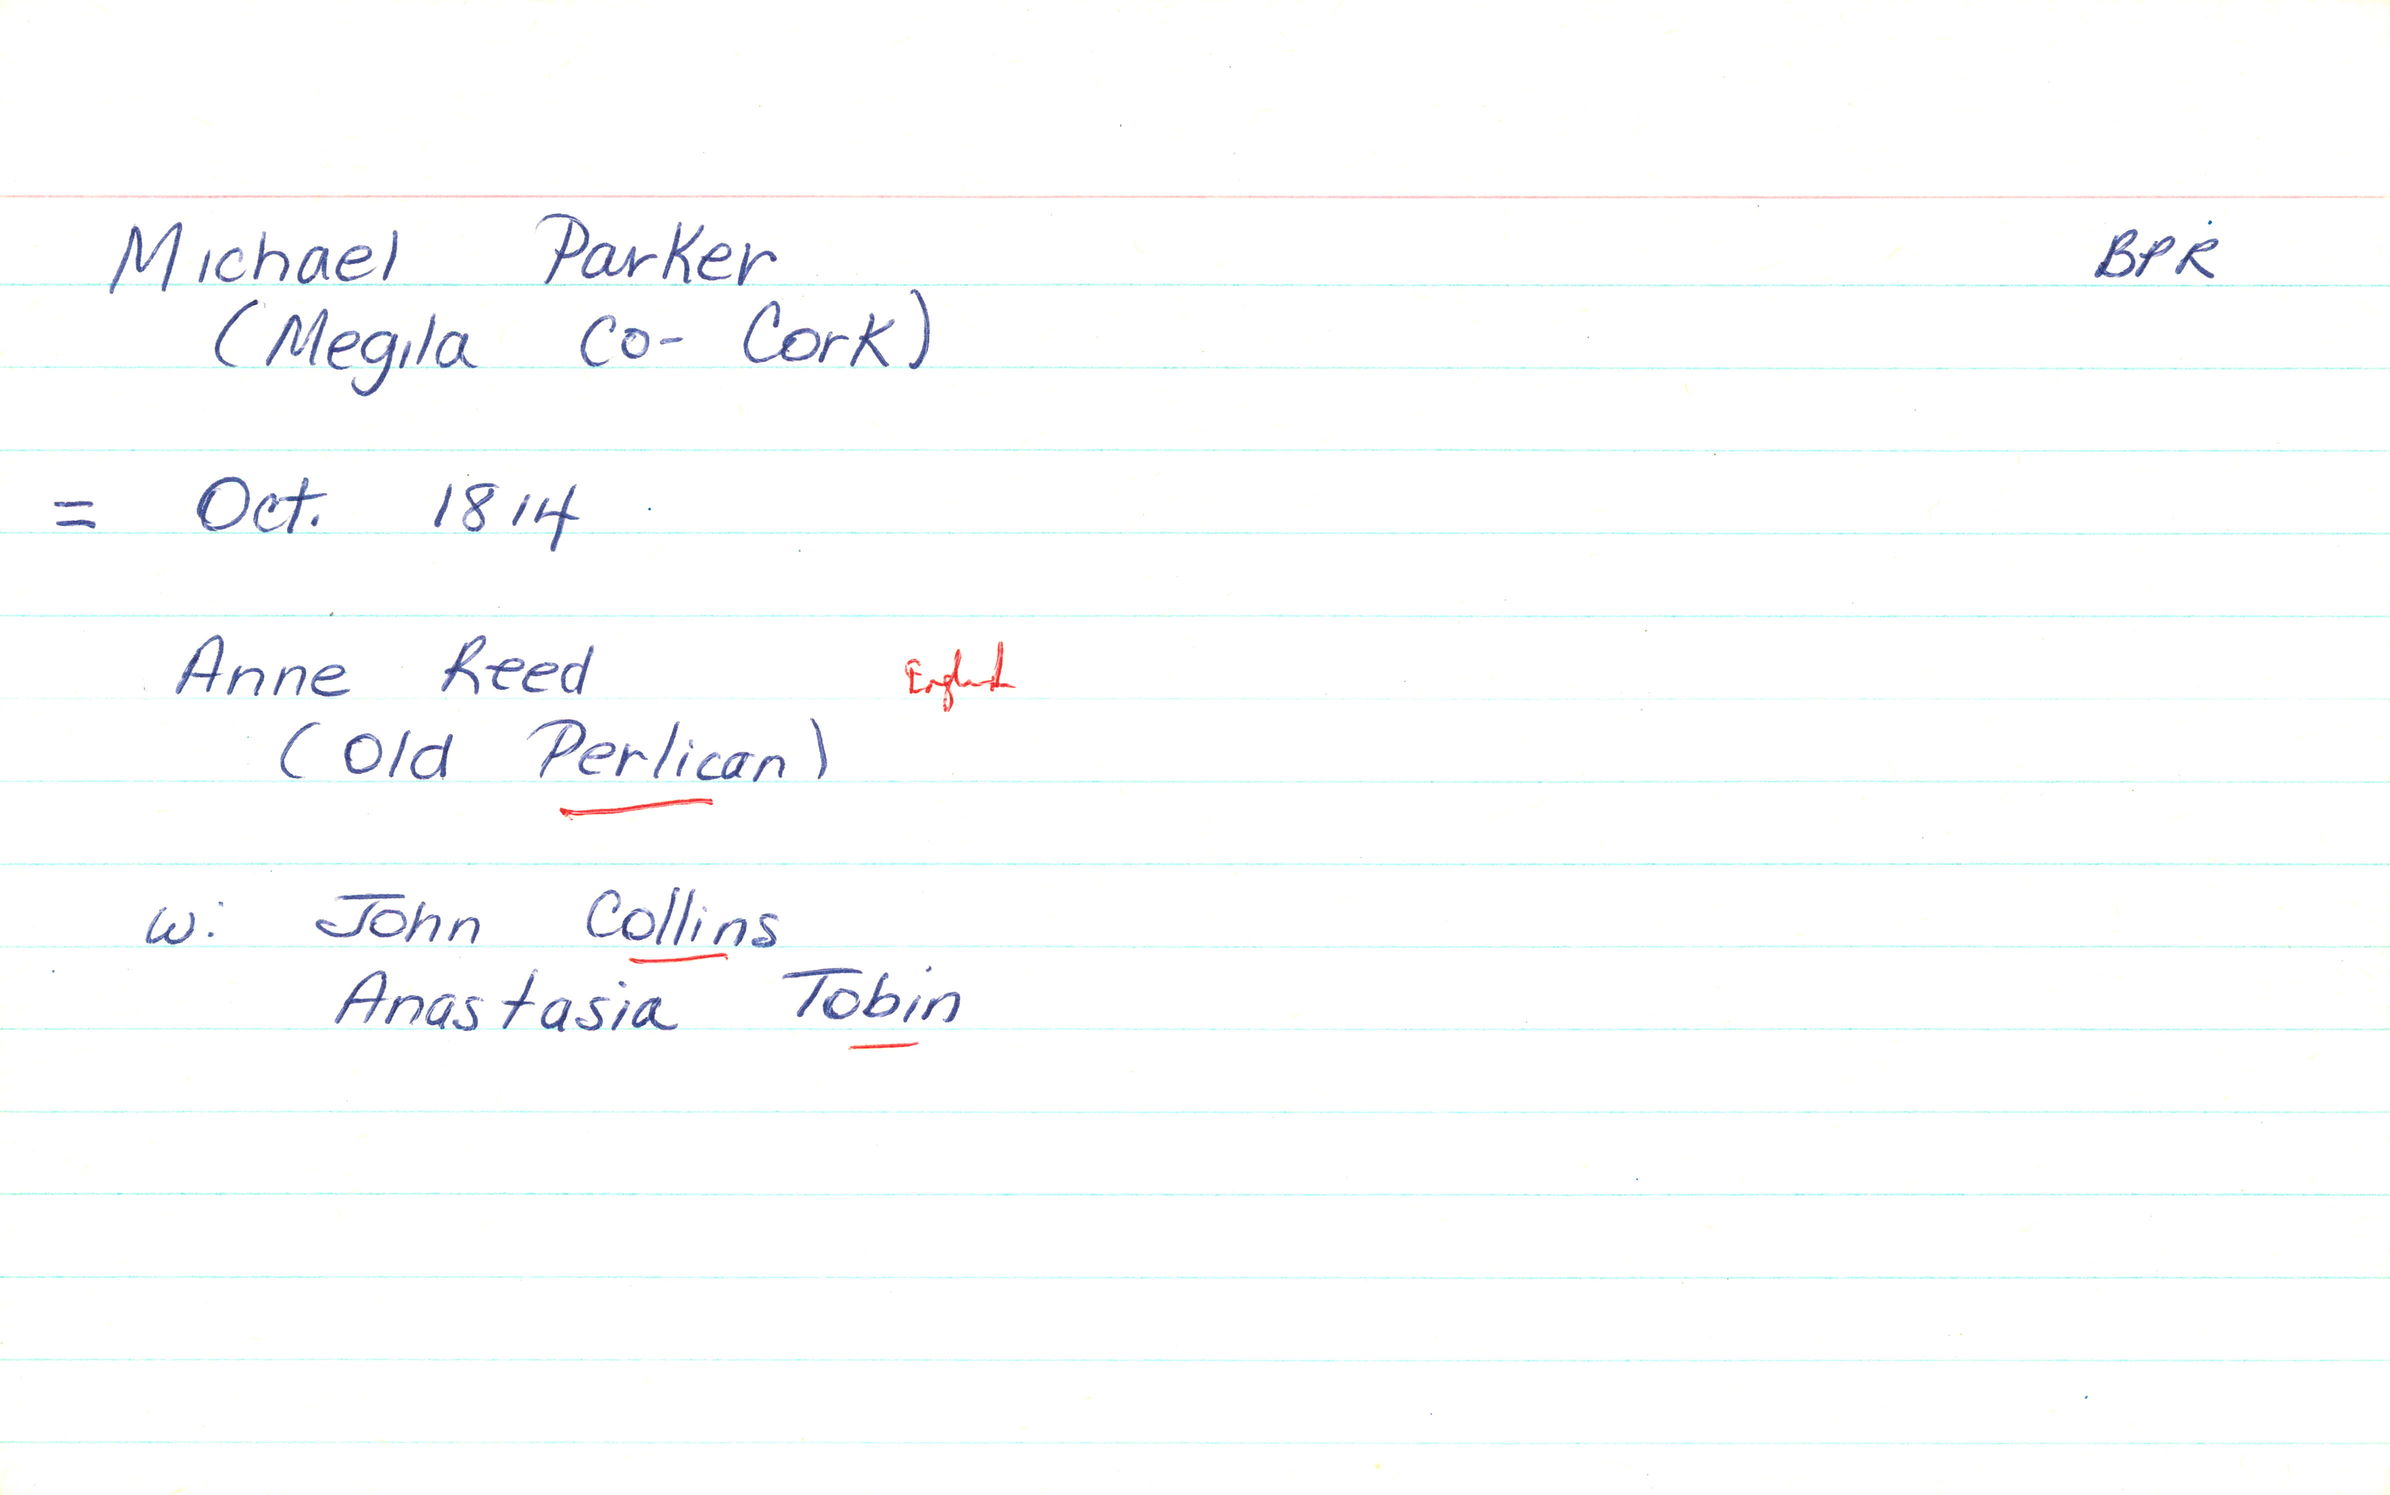 Michael Parker BPR
(Megila Co- Cork)
= Oct. 1814
Anne Reed England
(Old Perlican)
w: John Collins
Anastasia Tobin